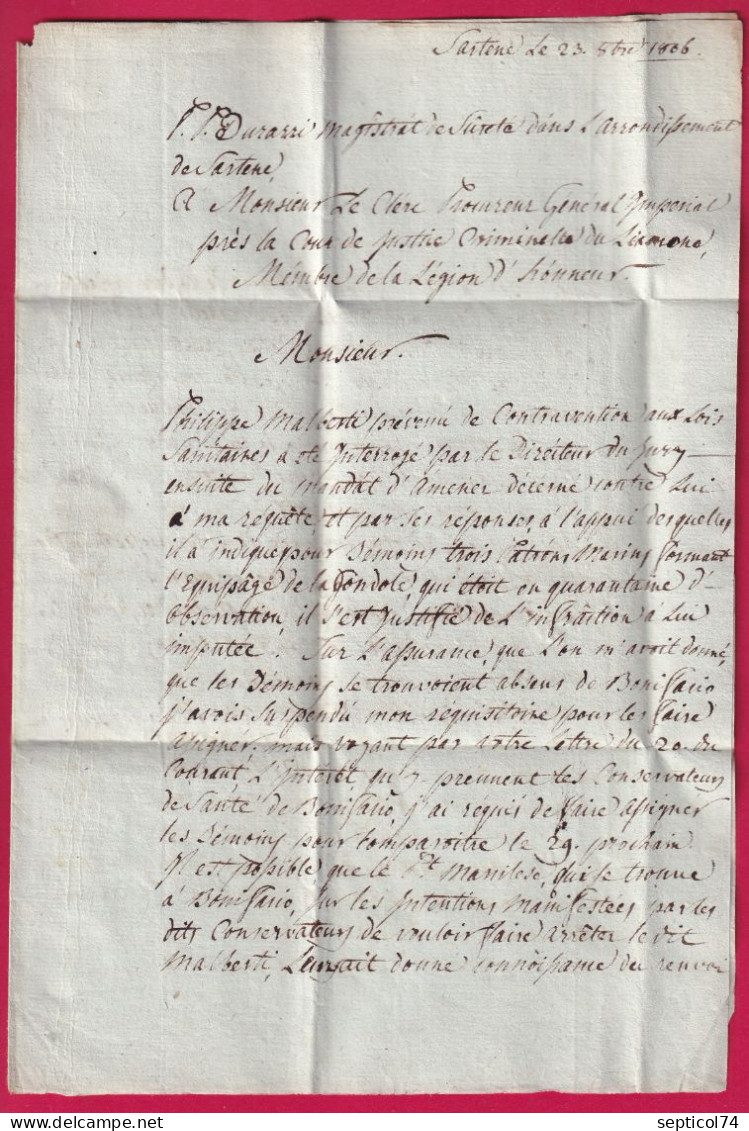 Sartene Le 23. 8bre 1806.
P. P. Durazzi magistrat de Sûreté dans L'arrondissement
de Sartene,
A Monsieur Le Clére Procureur Général Imperial
près la Cour de Justice Criminelle du Liamone,
Mémbre de la Légion d'hónneur.
Monsieur.
Philippe Malberti prévenú de Contravention aux Lois
Sanitaires à été Interrogé par le Directeur du Jury
ensuite du Mandât d'Amener décerné contre Lui
à ma requête, et par ses réponses, à l'appui desquelles
il à indiqué pour Démoins trois Patróns Marins formant
l'Equipâge de la Gondole, qui étoit en quarantaine d'
Observation, il s'est Justifié de L'infraction à Lui
imputée. Sur L'assurance, que l'on m'avoit donné,
que les Démoins se trouvoient absens de Bonifacio
j'avois suspendú mon réquisitoire pour les faire
assignér. mais voyant par votre Lettre du 20. du
Courant L'Interêt qu'y prennent les Conservateurs
de Santé de Bonifacio, j'ai requis de faire assigner
les Démoins pour comparoitre le 29. prochain.
Il est possible que le Manilese, qui se trouve
à Bonifacio, sur les Intentions Manifestées par les
dits Conservateurs de vouloir faire arrêter le dit
Malberti, Leur ait donné connoissance du renvoi
REPRODUCTION INTERDITE
septicol74